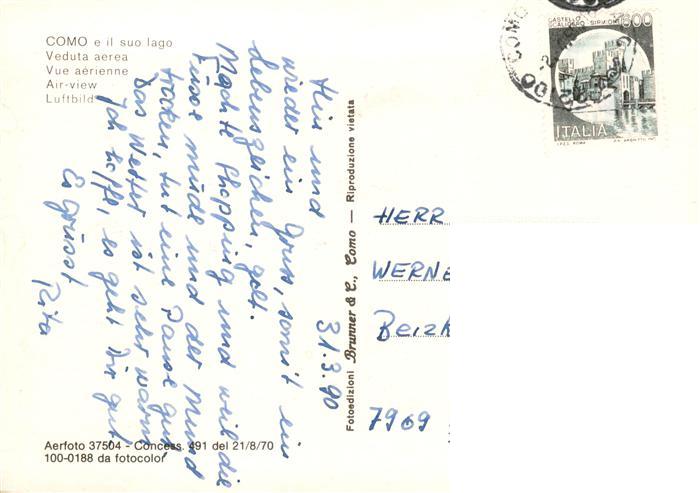 COMO e il suo lago
Veduta aerea
Vue aérienne
Air-view
Luftbild
31.3.90
Hin und
wieder ein Gruss, somit ein
Lebenszeichen, gel.
Machte Shopping und weil die
Füsse müde und der Mund
trocken, tut eine Pause gut.
Das Wetter ist sehr warm.
Ich hoffe, es geht Dir gut.
Es grüsst
Rita
Aerfoto 37504 - Concess. 491 del 21/8/70
100-0188 da fotocolor
Fotoedizioni Brunner & C., Como — Riproduzione vietata
COMO
CASTELLO
SCALIGERO SIRMIONE
600
ITALIA
I.P.Z.S. ROMA
HERR
WERNE
Beizk
7969